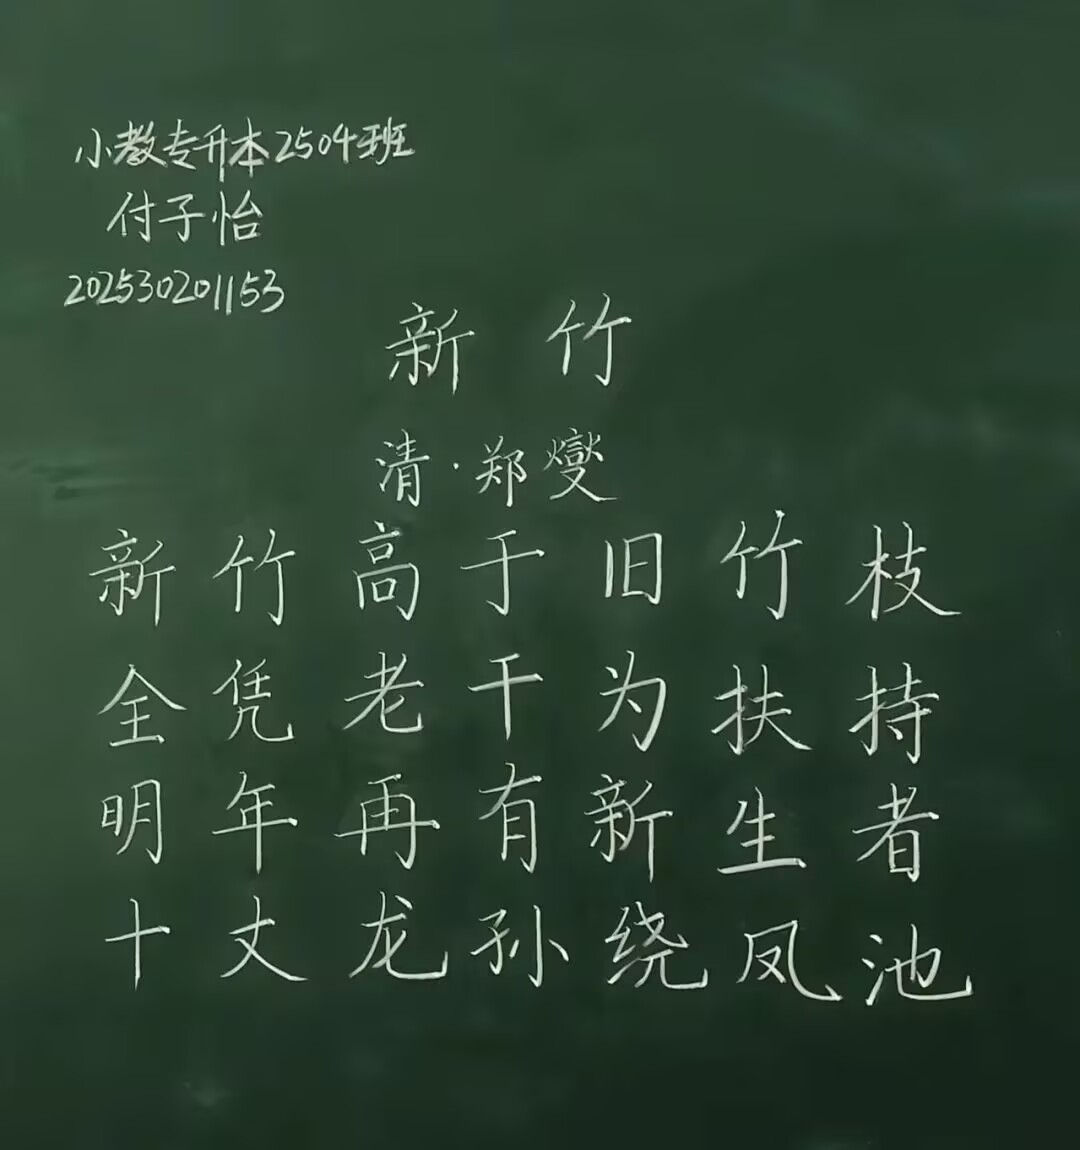 小教专升本2504班
付子怡
202530201153
新竹
清·郑燮
新竹高于旧竹枝
全凭老干为扶持
明年再有新生者
十丈龙孙绕凤池